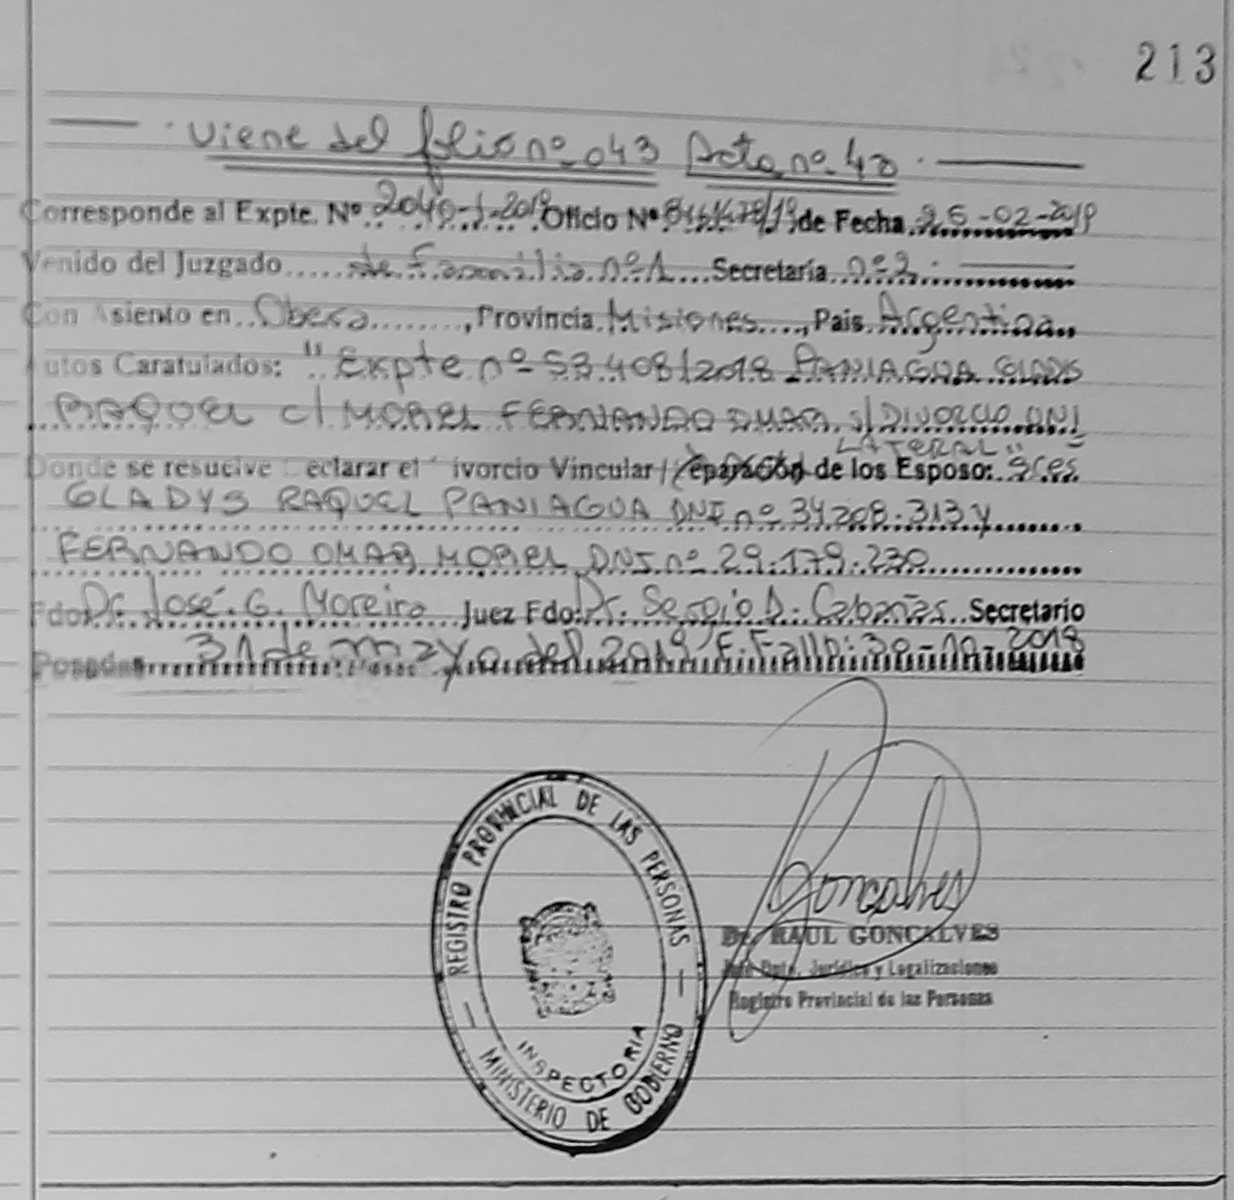 213
Viene del folio nº 043 Acta nº 42
Corresponde al Expte. Nº 2040-J-2019 Oficio Nº /19 de Fecha 25-02-2019
Venido del Juzgado de Familia nº 1 Secretaría nº 2
Con Asiento en Obera, Provincia Misiones, Pais Argentina
Autos Caratulados: "Expte nº 53.408/2018 PANIAGUA GLADIS
RAQUEL c/ MOREL FERNANDO OMAR s/ DIVORCIO UNI
LATERAL"
Donde se resuelve Declarar el Divorcio Vincular / Separación de los Esposo: sres
GLADYS RAQUEL PANIAGUA DNI nº 34.208.313 y
FERNANDO OMAR MOREL DNI nº 29.179.230
Fdo: Dr. José G. Moreiro Juez Fdo: Dr. Sergio D. Cabañas Secretario
Posadas 31 de mayo del 2019 F. Fallo: 30-10-2018
REGISTRO PROVINCIAL DE LAS PERSONAS
INSPECTORIA
MINISTERIO DE GOBIERNO
Goncalves
Dr. RAUL GONCALVES
Jefe Dpto. Jurídico y Legalizaciones
Registro Provincial de las Personas